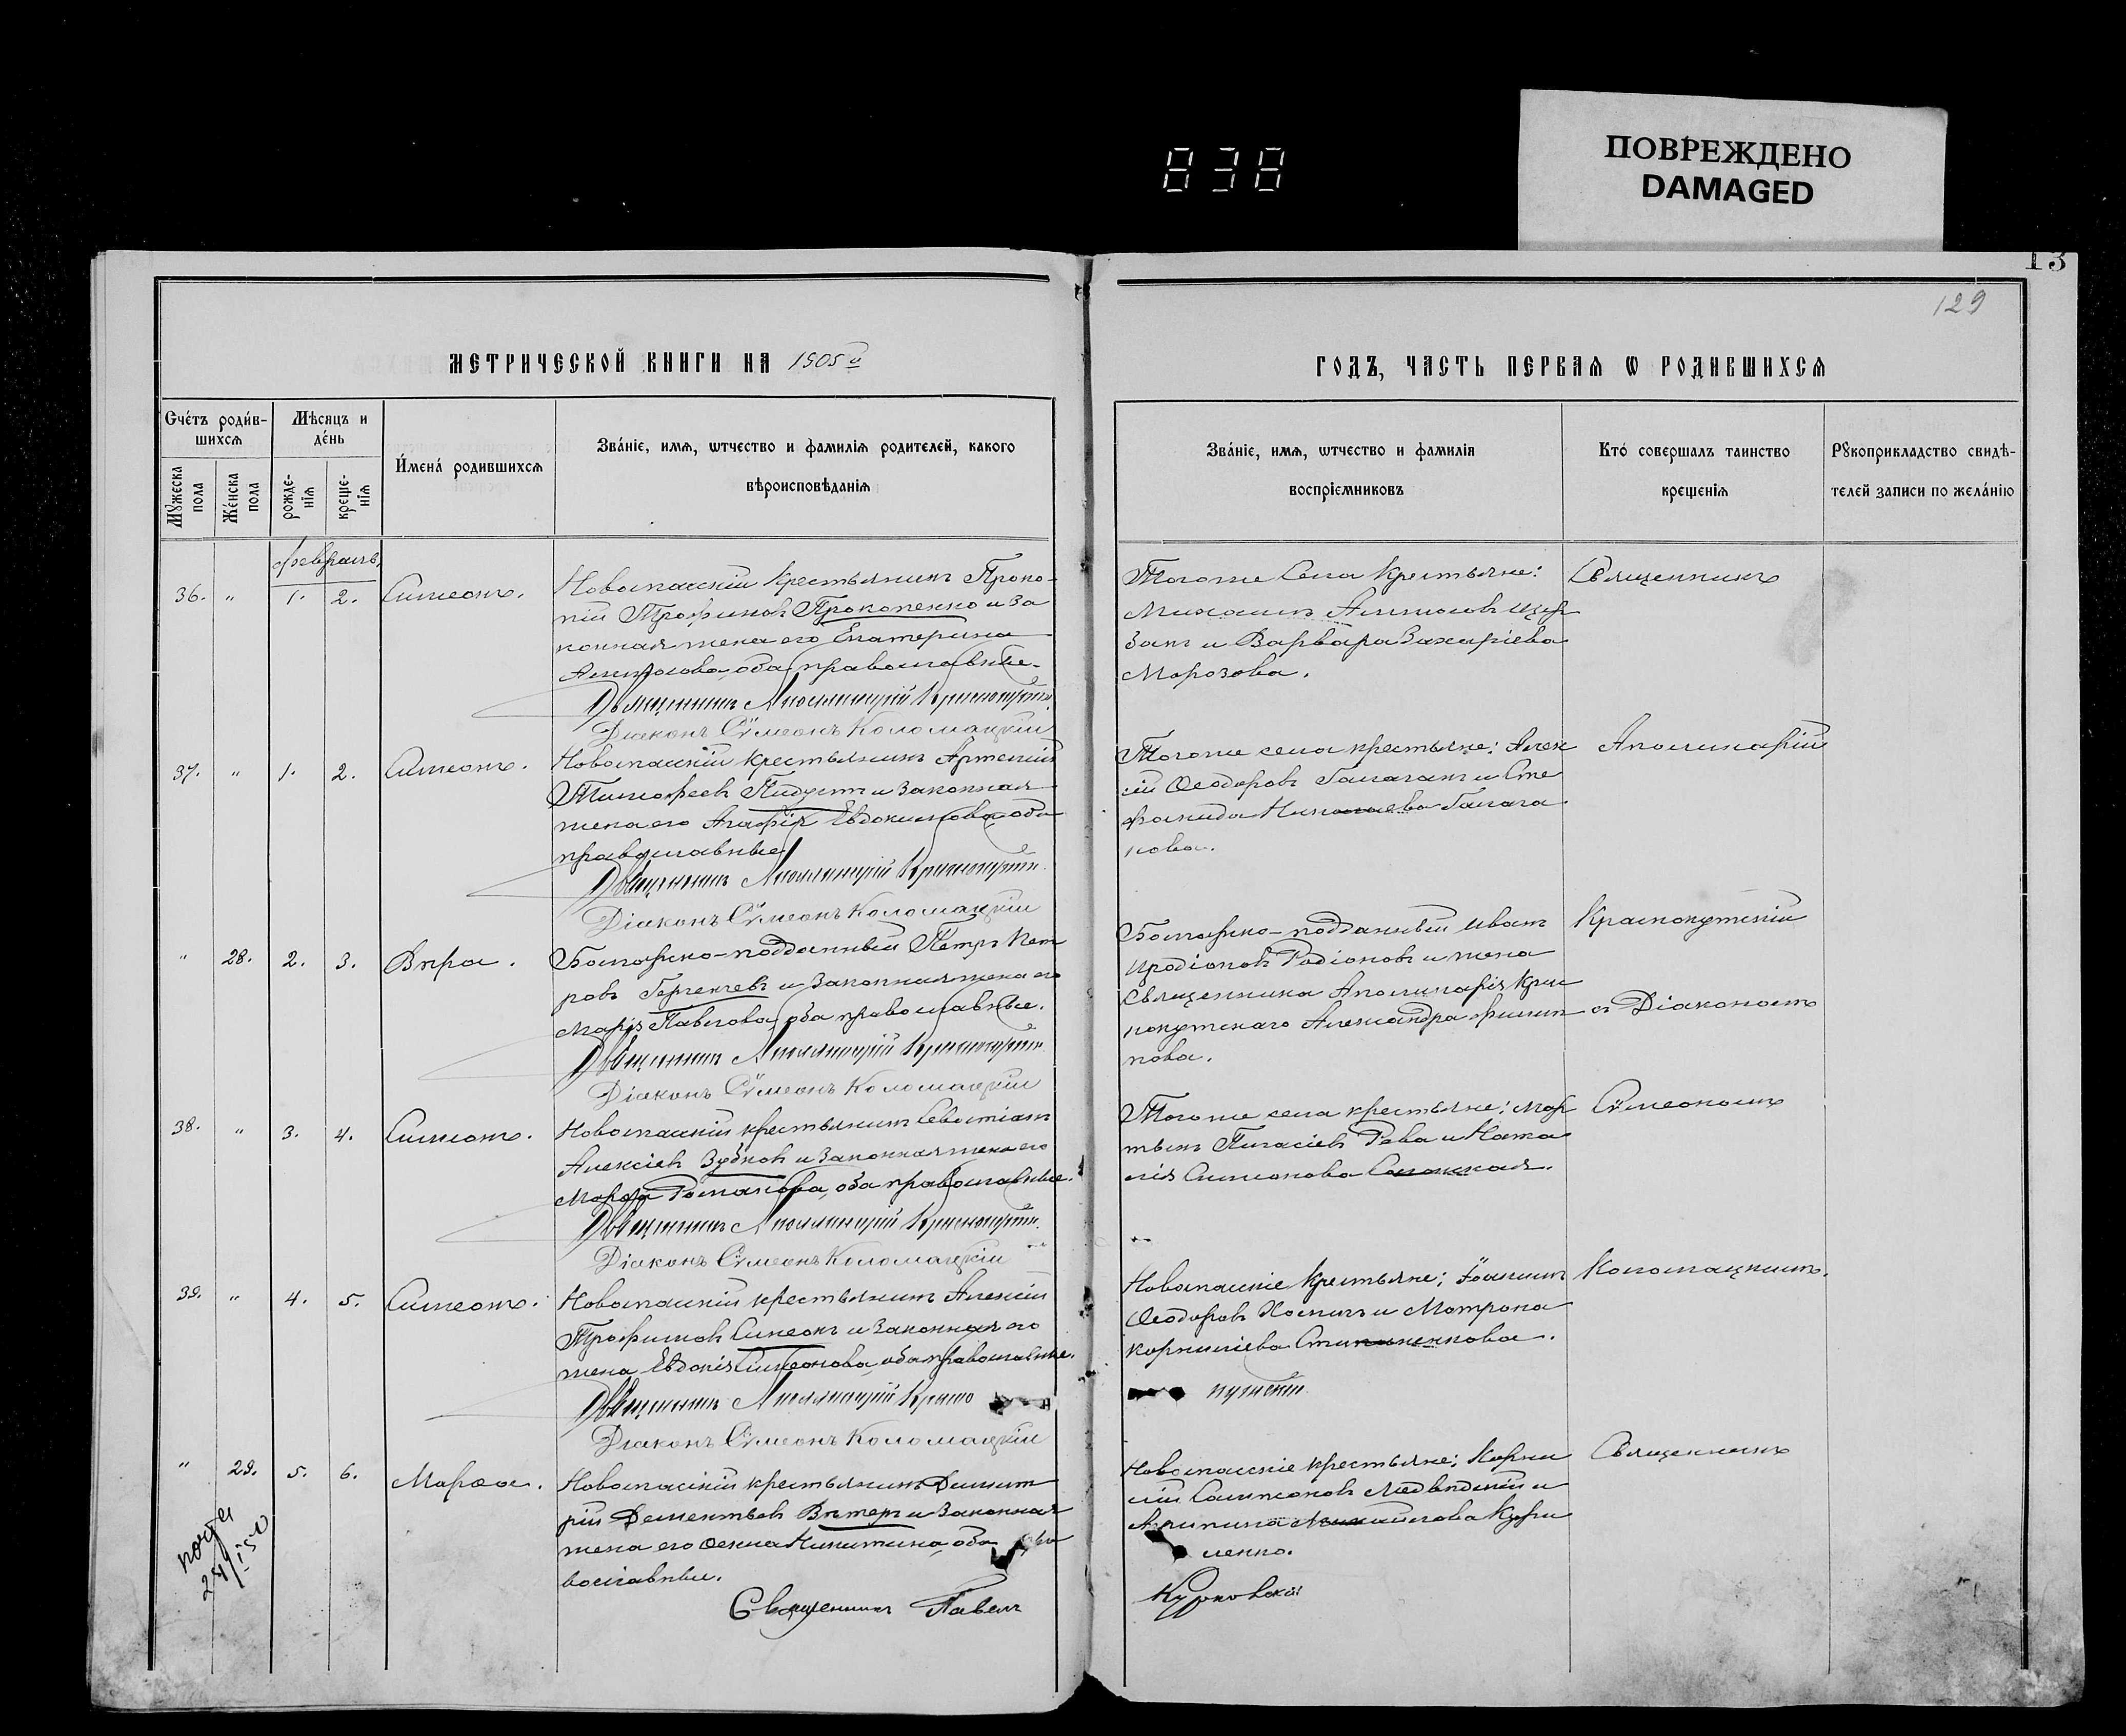 ПОВРЕЖДЕНО
DAMAGED
838
13
129
МЕТРИЧЕСКОЙ КНИГИ НА 1905й
ГОДЪ, ЧАСТЬ ПЕРВАѦ Ѡ РОДИВШИХСѦ
Счéтъ роди́в-
шихсѧ
Мꙋжеска
пола
Жéнска
пола
Мѣсяцъ и
дéнь
рожде-
нїѧ
креще-
нїѧ
И́менá родившихсѧ
Звáнїе, имѧ, ѡтчество и фамилїѧ родителей, какого
вѣроисповѣданїѧ
Звáнїе, имѧ, ѡтчество и фамилїѧ
воспрїемниковъ
Ктó совершалъ таинство
крещенїѧ
Рꙋкоприкладство свидѣ-
телей записи по желáнїю
Февраль
36. " 1. 2. Симеонъ.
Новоспасскій крестьянинъ Проко-
пій Трофимовъ Прокопенко и за
конная жена его Екатерина
оба православные.
Священникъ Аполлинарій Краснокутскій
Діаконъ Сѵмеонъ Коломацкій
Тогоже села крестьяне:
Михаилъ
и Варвара Захаріева
Морозова.
Священникъ
37. " 1. 2. Симеонъ.
Новоспасскій крестьянинъ Артемій
Тимофеевъ и законная
жена его Агафія Евдокимова, оба
православные
Священникъ Аполлинарій Краснокутскій
Діаконъ Сѵмеонъ Коломацкій
Тогоже села крестьяне: Алек
сій Ѳеодоровъ Галаганъ и Сте
фанида Николаева Галага
нова.
Аполинарій
" 28. 2. 3. Вѣра.
Болгарско-подданный Петръ Пет
ровъ Гергенчевъ и законная жена его
Марія Павлова, оба православные.
Священникъ Аполлинарій Краснокутскій
Діаконъ Сѵмеонъ Коломацкій
Болгарско-подданный Иванъ
Иродіоновъ Родіоновъ и жена
священника Аполинарія Крас
нокутскаго Александра Филип
пова.
Краснокутскій
съ Діакономъ
38. " 3. 4. Симеонъ.
Новоспасскій крестьянинъ Севастіанъ
Алексіевъ Зубковъ и законная жена его
Марфа Романова, оба православные.
Священникъ Аполлинарій Краснокутскій
Діаконъ Сѵмеонъ Коломацкій
Тогоже села крестьяне: Мар
тынъ Пигасіевъ Рева и Ната
лія Симонова
Сѵмеономъ
39. " 4. 5. Симеонъ.
Новоспасскій крестьянинъ Алексій
Трофимовъ Симеонъ и законная его
жена Евдокія Симеонова, оба православные.
Священникъ Аполлинарій Красно
кутскій
Діаконъ Сѵмеонъ Коломацкій
Новоспасскіе крестьяне: Іоаннъ
Ѳеодоровъ и Матрона
Корнилієва
Коломацкимъ.
" 29. 5. 6. Марѳа.
Новоспасскій крестьянинъ Димит
рій Дементьевъ Вѣтеръ и законная
жена его Ѳекла Никитина, оба пра
вославные.
Новоспасскіе крестьяне: Корни
лій Сампсоновъ Медвѣдскій и
Агрипина Михайлова Кури
ленко.
Священникъ
Священникъ Павелъ
Курковскій